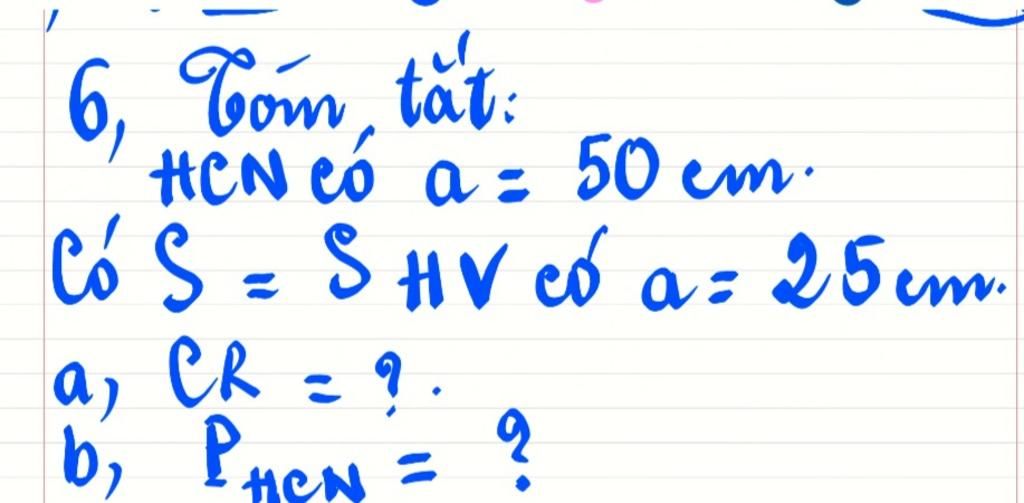 6, Tóm tắt:
HCN có a = 50 cm.
Có S = S HV có a = 25 cm.
a, CR = ?.
b, P HCN = ?